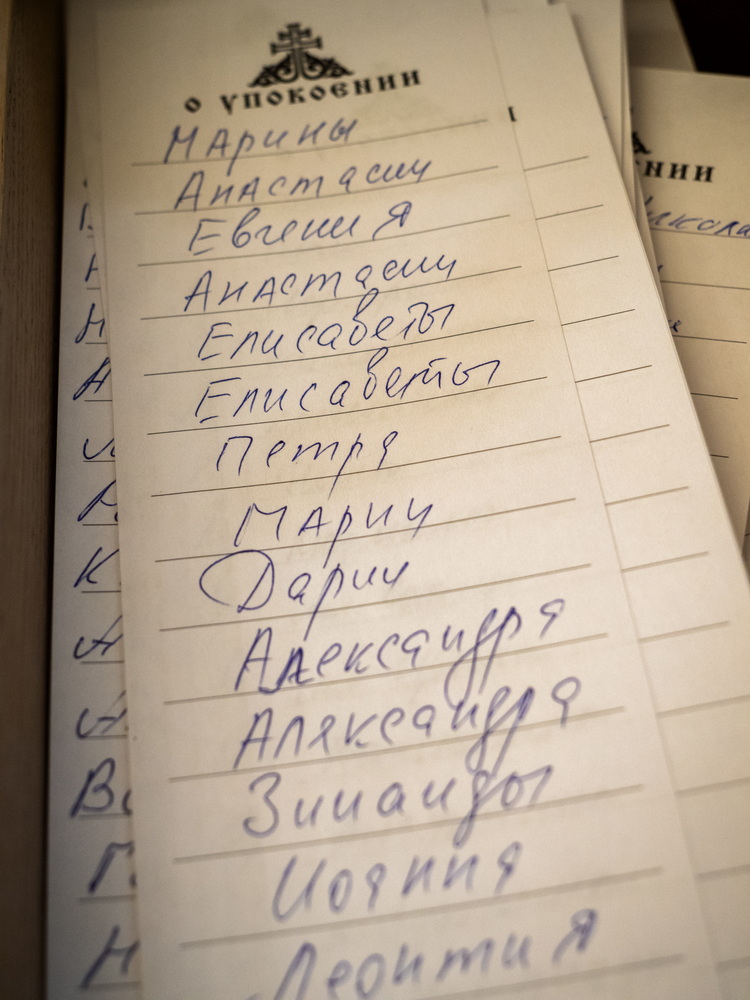 о упокоении
Марины
Анастасии
Евгения
Анастасии
Елисаветы
Елисаветы
Петра
Марии
Дарии
Александра
Аляксандра
Зинаиды
Иоанна
Леонтия